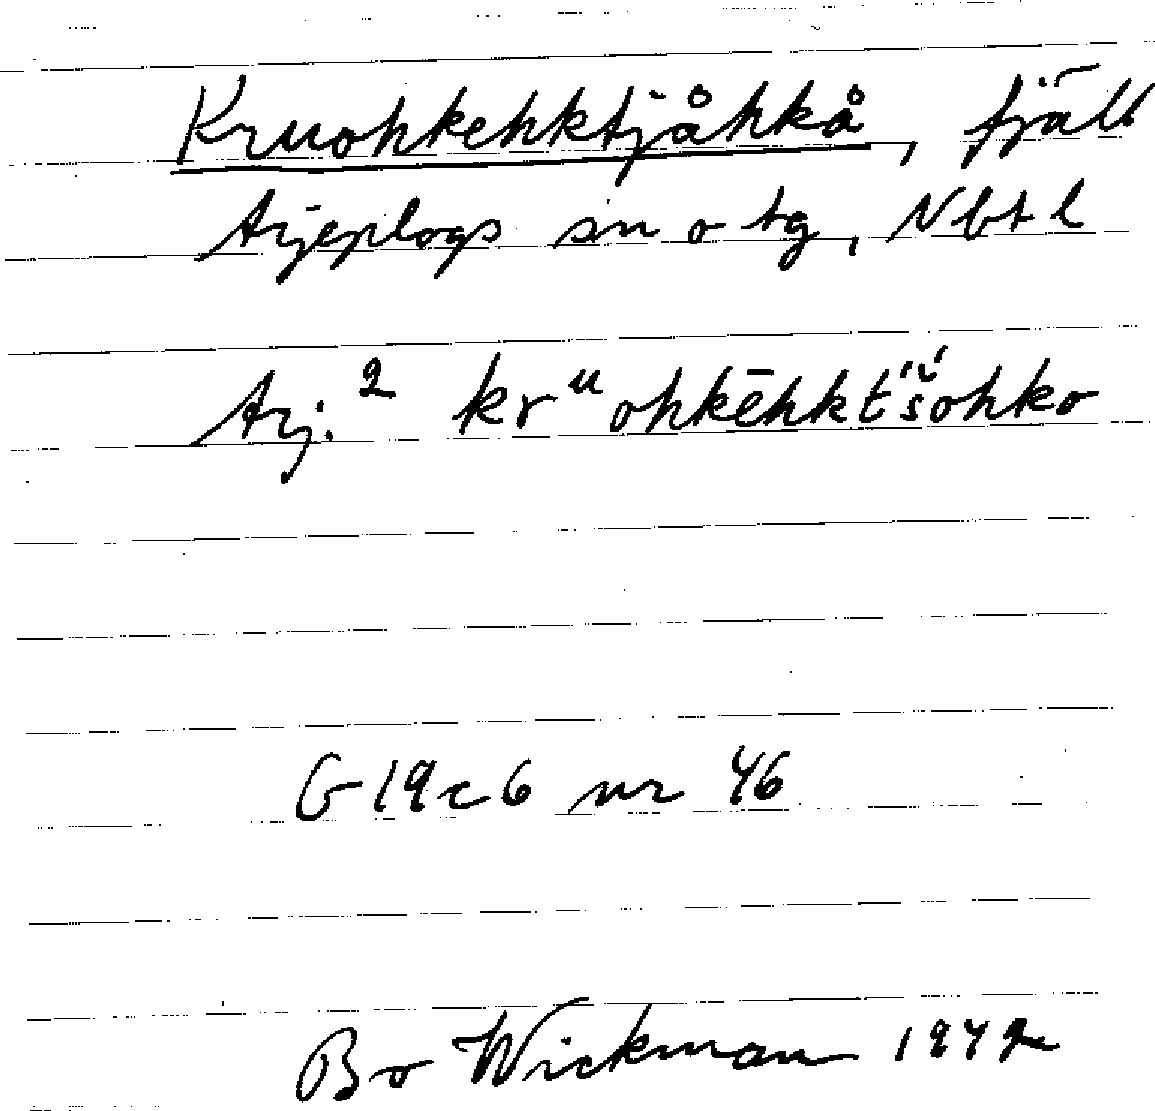 Kruohkehktjåhkå, fjäll
Arjeplogs sn o tg, Nbt l
Arj.² krᵘohkēhkt́š́ohko
G 19 c 6 nr 46
Bo Wickman 1942